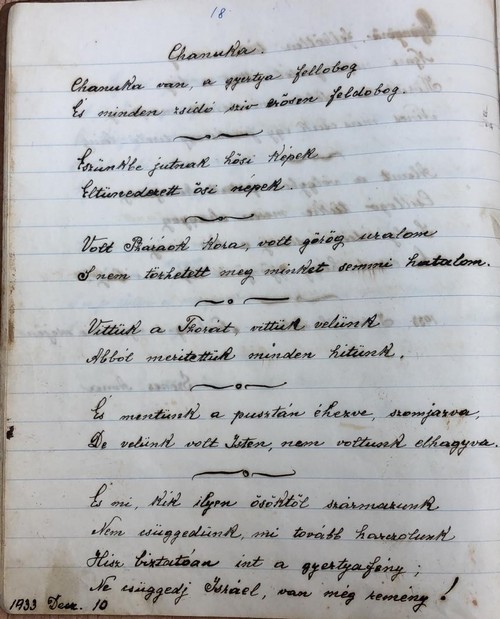 18
Chanuka.
Chanuka van, a gyertya fellobog
És minden zsidó sziv erősen feldobog.
Eszünkbe jutnak hősi képek
Eltünederett ősi népek.
Volt Fáráok kora, volt görög uralom
S nem törhetett meg minket semmi hatalom.
Vittük a Thórát, vittük velünk
Abból meritettük minden hitünk.
És mentünk a pusztán éhezve, szomjazva,
De velünk volt Isten, nem voltunk elhagyva.
És mi, kik ilyen ősöktől származunk
Nem csüggedünk, mi tovább harczolunk
Hisz biztatóan int a gyertyafény;
Ne csüggedj Izráel, van még remény!
1933 Dec. 10